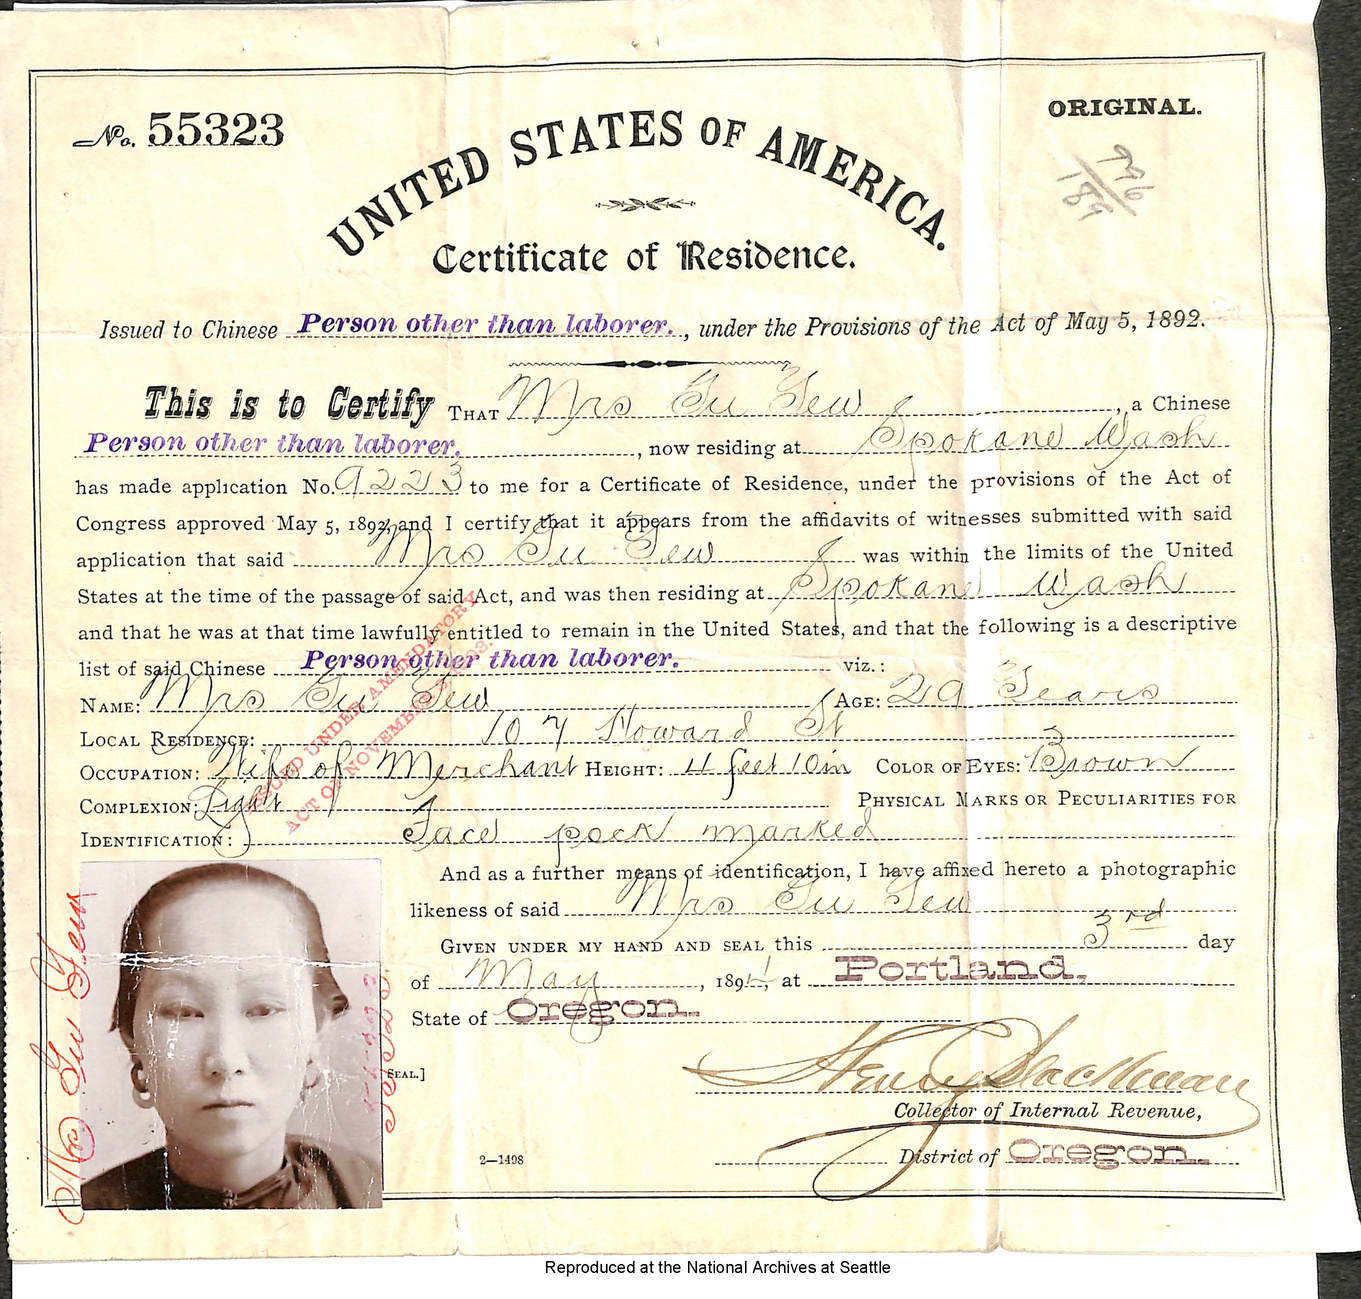 No. 55323
ORIGINAL.
UNITED STATES OF AMERICA.
Certificate of Residence.
Issued to Chinese Person other than laborer., under the Provisions of the Act of May 5, 1892.
This is to Certify THAT Mrs Gu Gew, a Chinese
Person other than laborer., now residing at Spokane Wash
has made application No. 9223 to me for a Certificate of Residence, under the provisions of the Act of
Congress approved May 5, 1892, and I certify that it appears from the affidavits of witnesses submitted with said
application that said Mrs Gu Gew was within the limits of the United
States at the time of the passage of said Act, and was then residing at Spokane Wash
and that he was at that time lawfully entitled to remain in the United States, and that the following is a descriptive
list of said Chinese Person other than laborer. viz.:
NAME: Mrs Gu Gew AGE: 29 Years
LOCAL RESIDENCE: 107 Howard St
OCCUPATION: Wife of Merchant HEIGHT: 4 feet 10 in COLOR OF EYES: Brown
COMPLEXION: Light PHYSICAL MARKS OR PECULIARITIES FOR
IDENTIFICATION: Face pock marked
ISSUED UNDER AMENDATORY
ACT OF NOVEMBER 3, 1893.
And as a further means of identification, I have affixed hereto a photographic
likeness of said Mrs Gu Gew
GIVEN UNDER MY HAND AND SEAL this 3rd day
of May, 1894, at Portland,
State of Oregon.
[SEAL.]
Mrs Gu Gew
55323.
Henry Blackman
Collector of Internal Revenue,
District of Oregon.
2—1498
Reproduced at the National Archives at Seattle